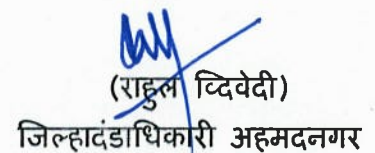 (राहुल व्दिवेदी)
जिल्हादंडाधिकारी अहमदनगर